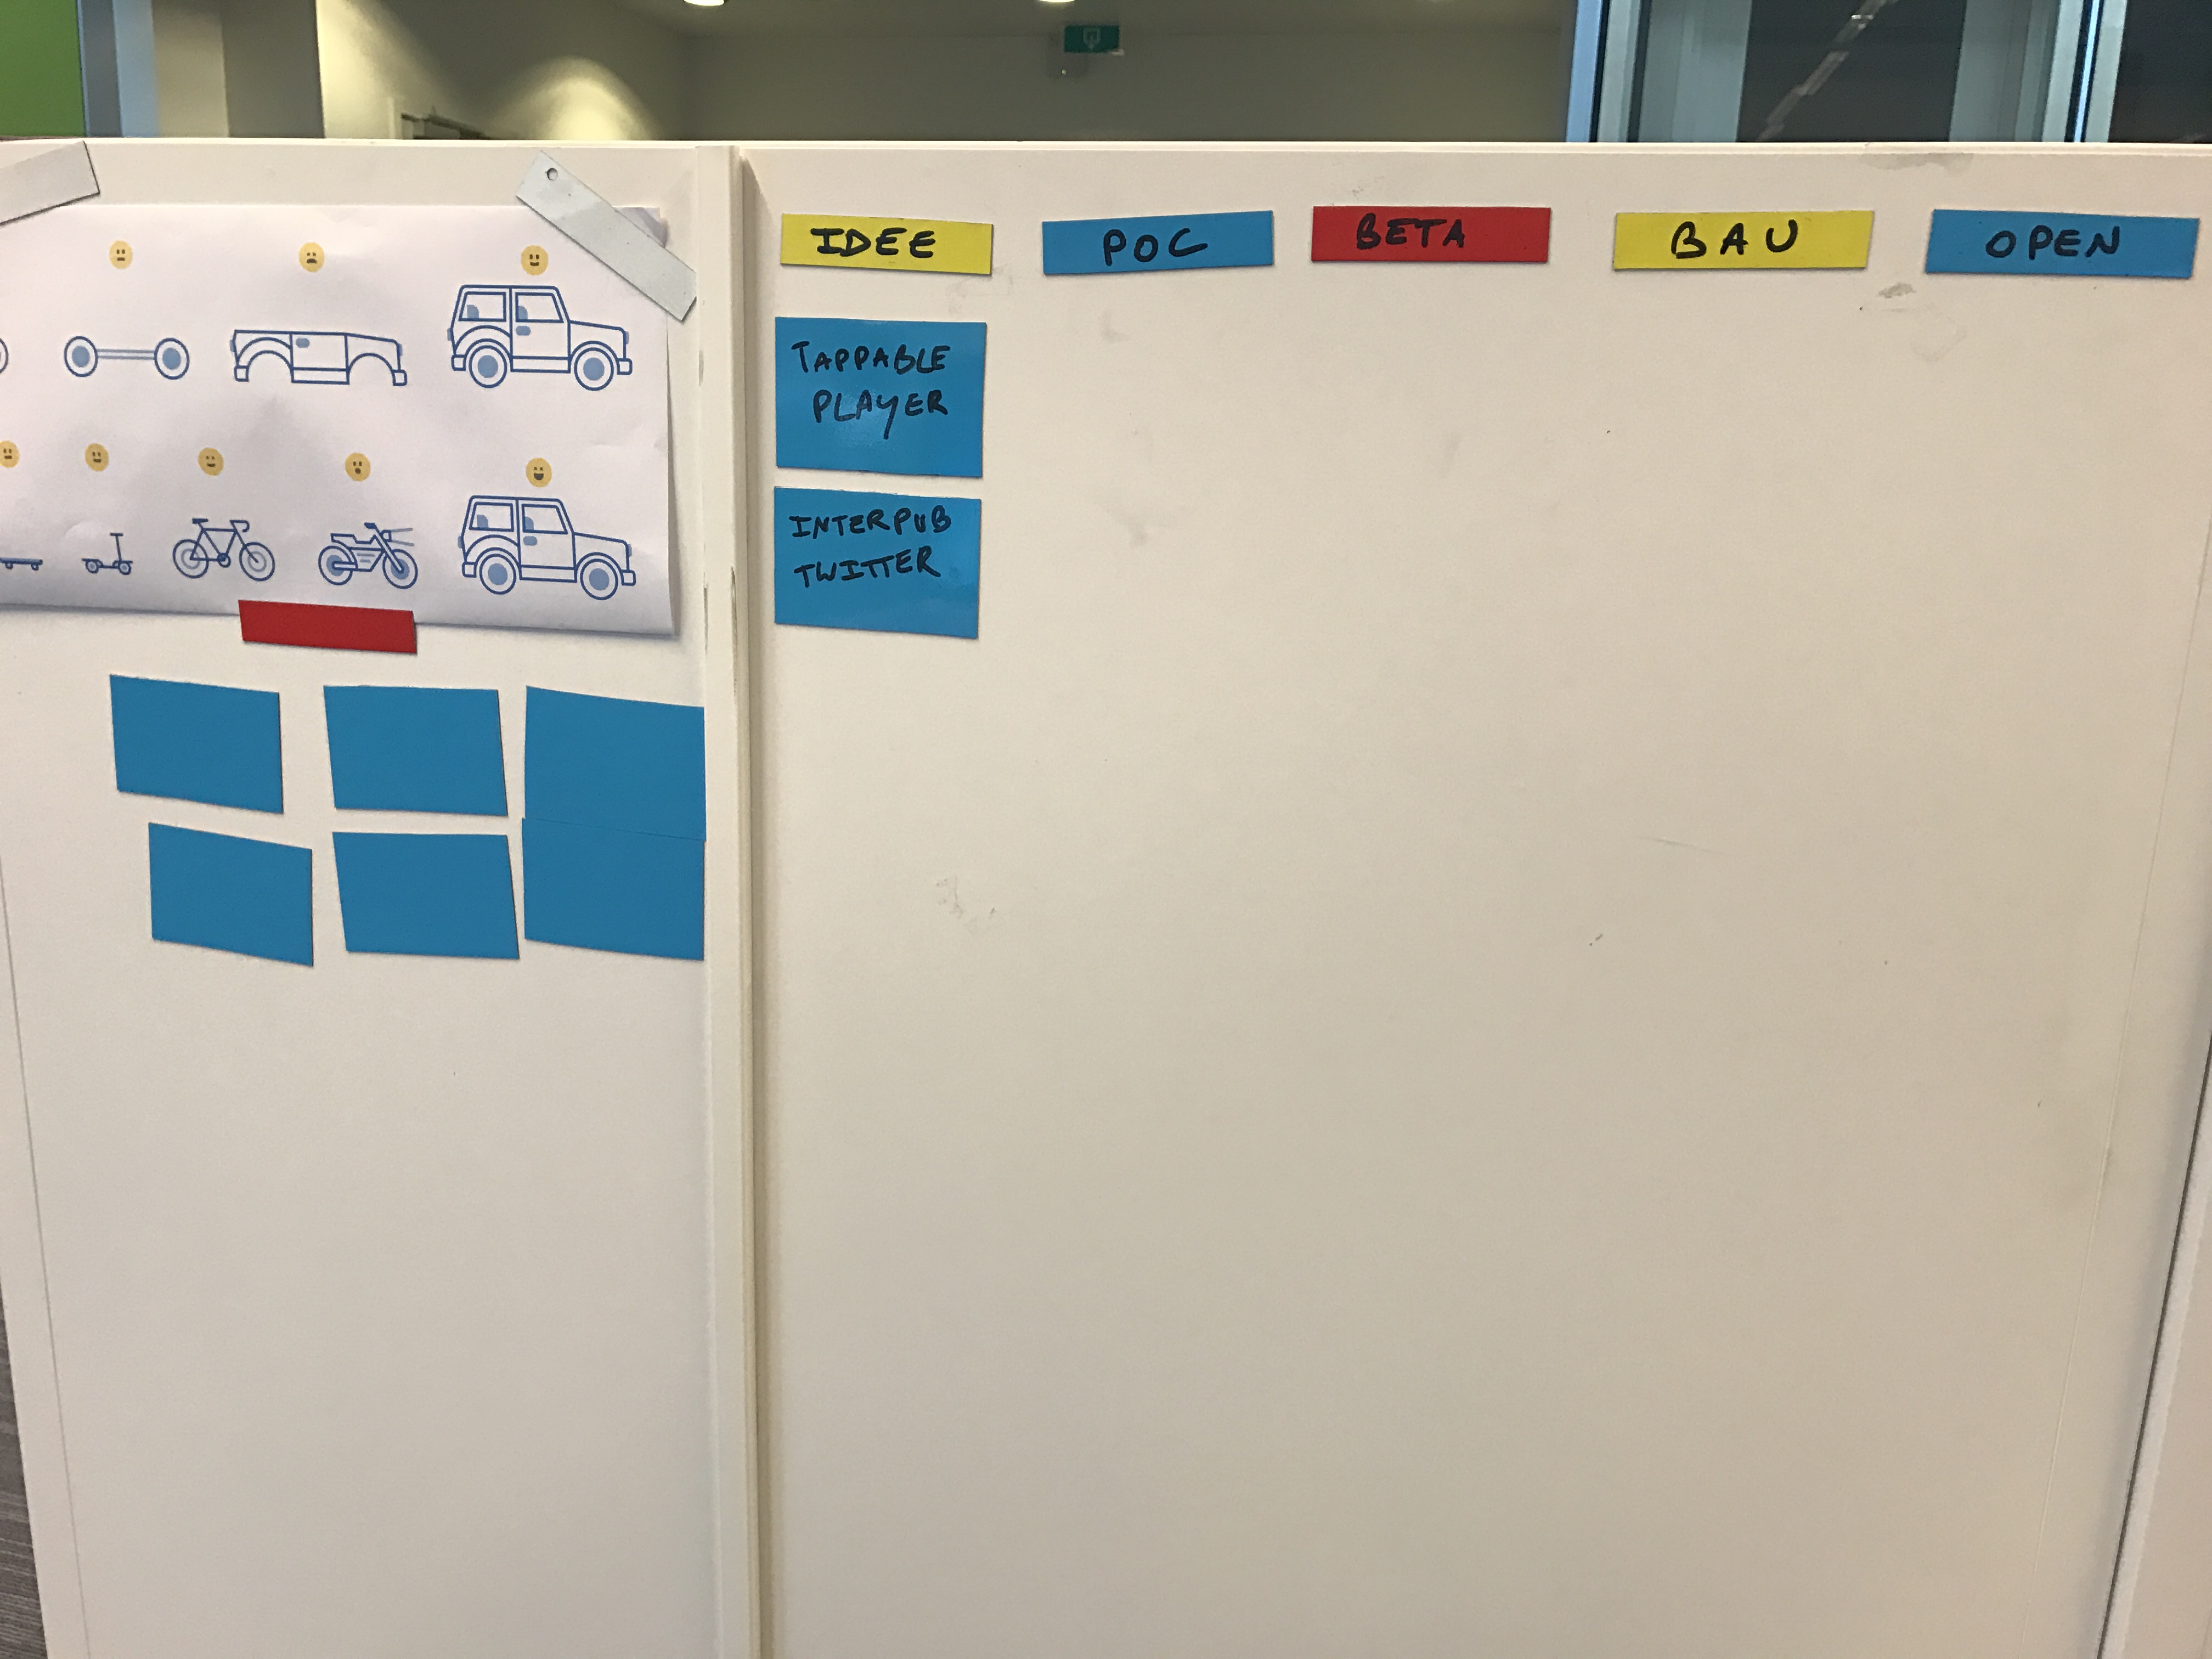 IDEE
POC
BETA
BAU
OPEN
TAPPABLE
PLAYER
INTERPUB
TWITTER